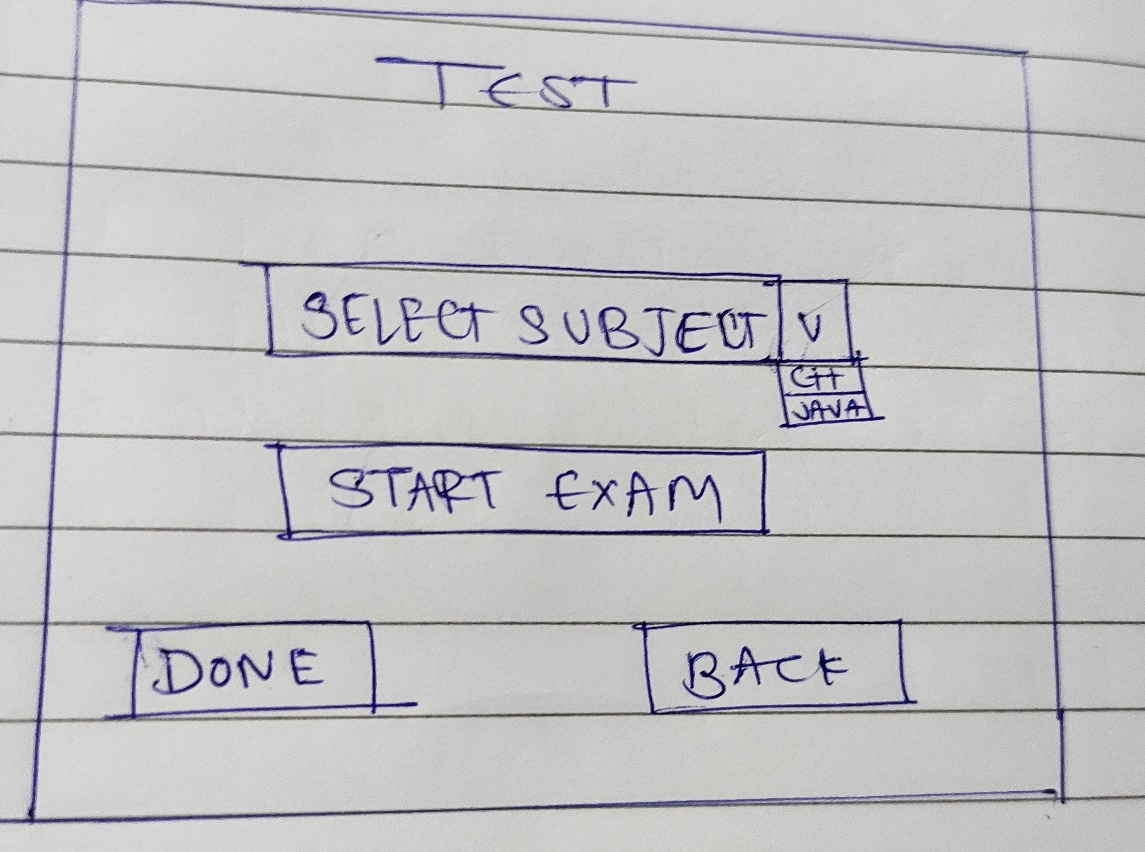 TEST
SELECT SUBJECT V
C++
JAVA
START EXAM
DONE BACK